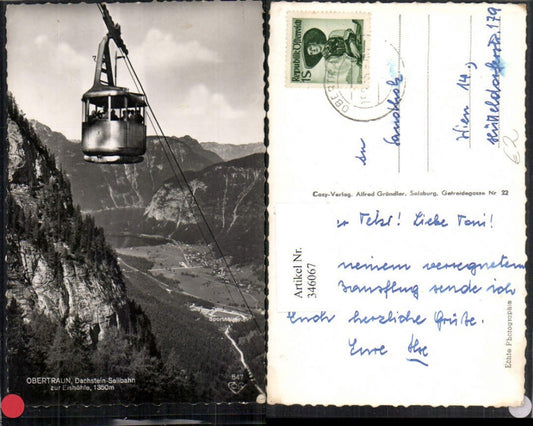 OBERTRAUN, Dachstein-Seilbahn
zur Eishöhle, 1350m
Sporthotel
647
Republik Österreich
1S
OBERTR
Wien 14.,
Hütteldorferstr. 179
62
Cosy-Verlag, Alfred Gründler, Salzburg, Getreidegasse Nr. 22
Artikel Nr.
346067
Liebe Toni!
meinem verregneten
sende ich
Euch herzliche Grüße.
Eure Ilse
Echte Photographie